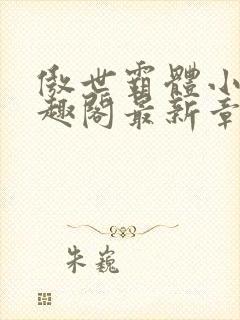 傲世霸體小
趣閣最新章
朱巍